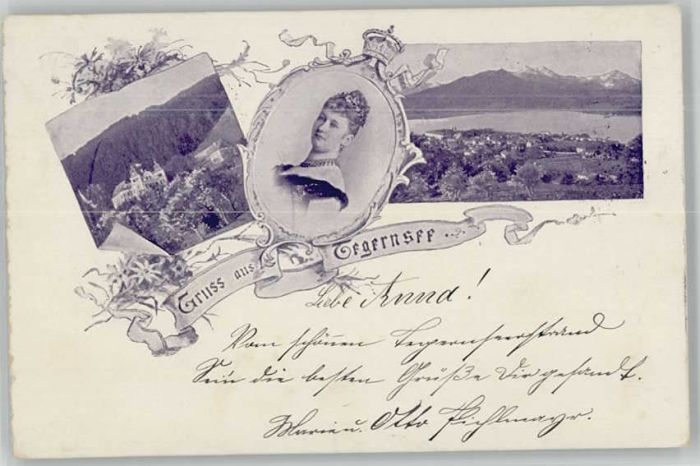 Gruss aus Tegernsee
Liebe Anna!
Vom schönen Tegernseerstrand
Sei'n die besten Grüße Dir gesandt.
Marie u. Otto Pichlmayr.